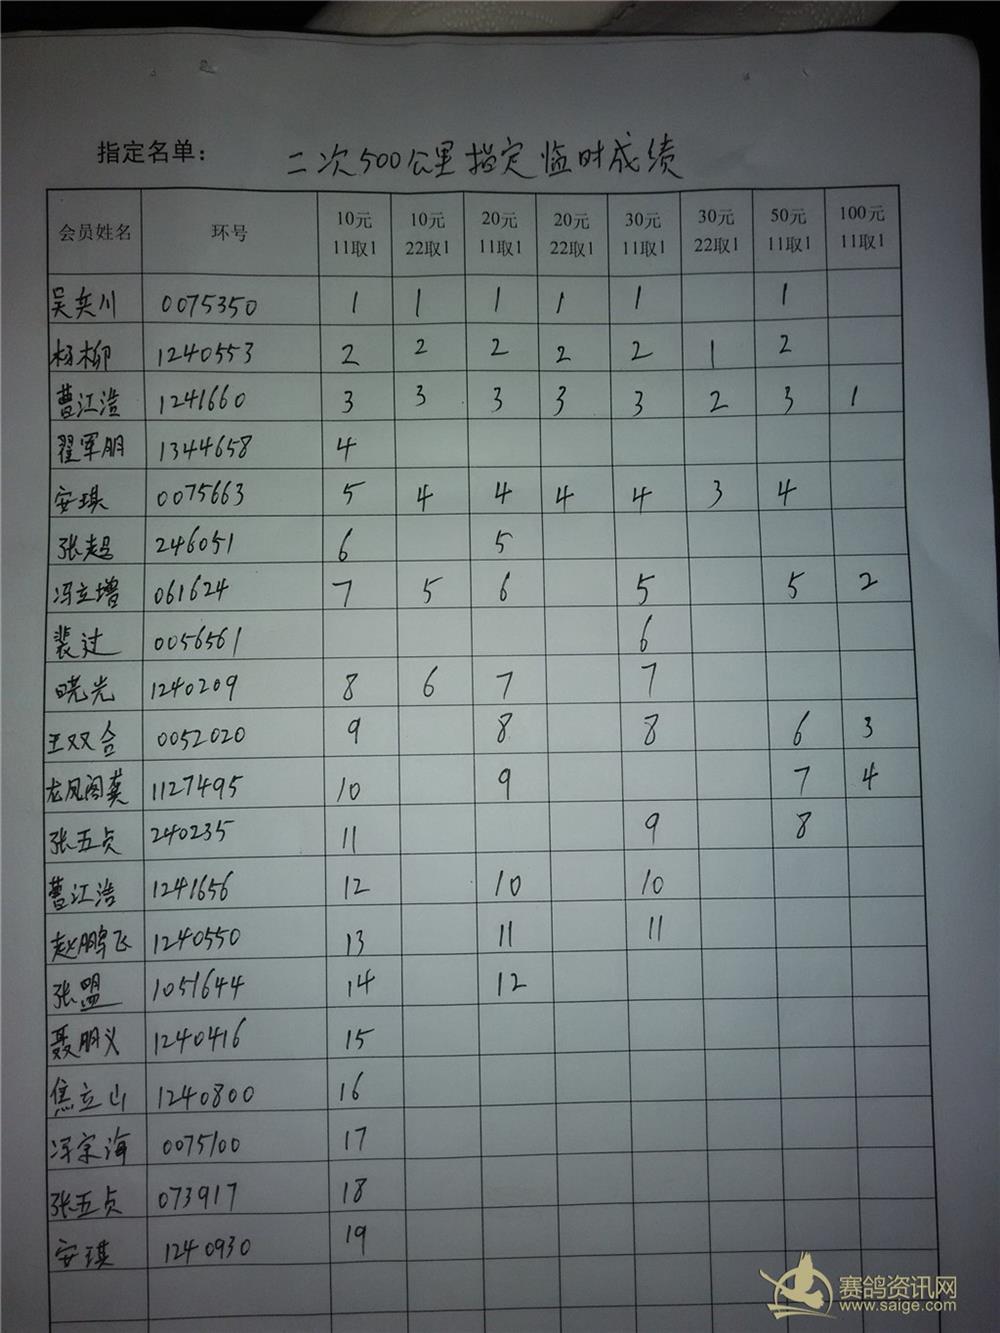 指定名单： 二次500公里指定临时成绩
会员姓名 环号 10元 11取1 10元 22取1 20元 11取1 20元 22取1 30元 11取1 30元 22取1 50元 11取1 100元 11取1
吴奕川 0075350 1 1 1 1 1 1
杨柳 1240553 2 2 2 2 2 1 2
曹江浩 1241660 3 3 3 3 3 2 3 1
翟军朋 1344658 4
安琪 0075663 5 4 4 4 4 3 4
张超 246051 6 5
冯立增 061624 7 5 6 5 5 2
裴过 0056561 6
曉光 1240209 8 6 7 7
王双合 0052020 9 8 8 6 3
龙凤阁龚 1127495 10 9 7 4
张五贞 240235 11 9 8
曹江浩 1241656 12 10 10
赵鹏飞 1240550 13 11 11
张盟 1051644 14 12
聂朋义 1240416 15
焦立山 1240800 16
冯宗海 0075100 17
张五贞 073917 18
安琪 1240930 19
赛鸽资讯网
www.saige.com